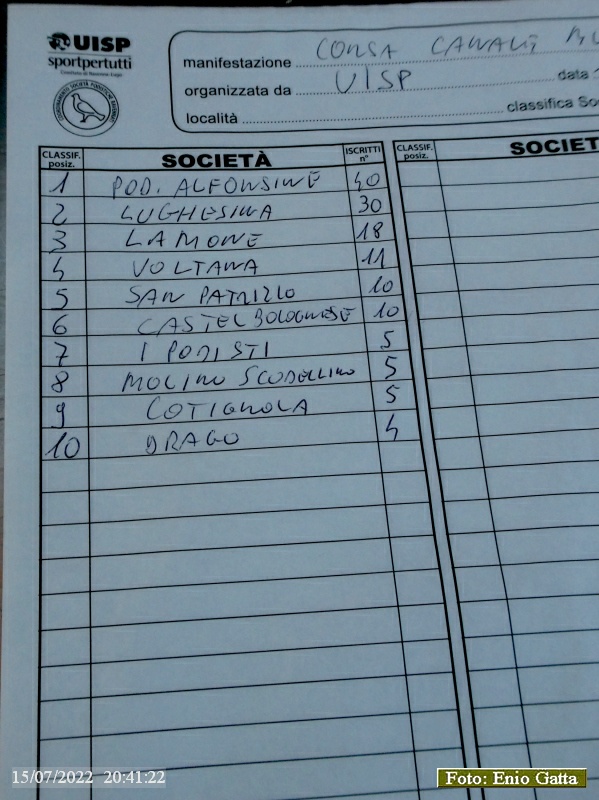 UISP
sportpertutti
COORDINAMENTO SOCIETÀ PODISTICHE
manifestazione CORSA CANALI
organizzata da UISP data
località classifica So
CLASSIF. posiz. SOCIETÀ ISCRITTI n° CLASSIF. posiz. SOCIET
1 POD. ALFONSINE 40
2 LUGHESINA 30
3 LAMONE 18
4 VOLTANA 11
5 SAN PATRIZIO 10
6 CASTEL BOLOGNESE 10
7 I PODISTI 5
8 MOLINO SCODELLINO 5
9 COTIGNOLA 5
10 DRAGO 4
15/07/2022 20:41:22
Foto: Enio Gatta